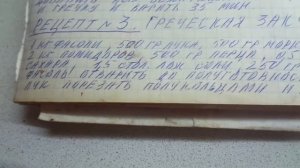 ВАРИТЬ 35 МИН.
РЕЦЕПТ № 3. ГРЕЧЕСКАЯ ЗАК
1 КГ ФАСОЛИ, 500 ГР ЛУКА, 500 ГР МОРК
2 КГ ПОМИДОРОВ 500 ГР ПЕРЦА, 0,5
САХАРА, 1,5 СТОЛ. ЛОЖ СОЛИ, 250 Г
ФАСОЛЬ ОТВАРИТЬ ДО ПОЛУГОТОВНОС
ЛУК ПОРЕЗАТЬ ПОЛУКОЛЬЦАМИ И